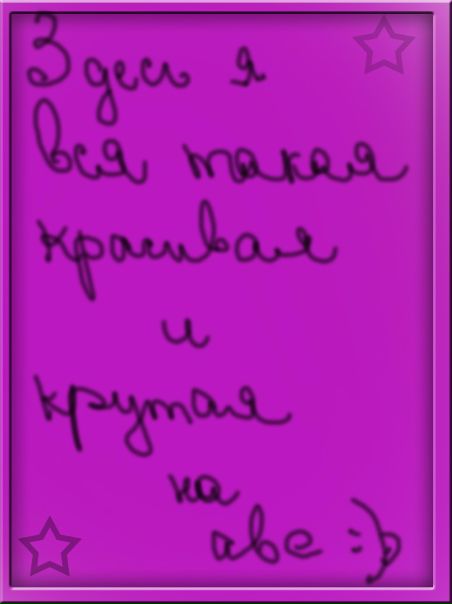 Здесь я
вся такая
красивая
и
крутая
на
аве =:)